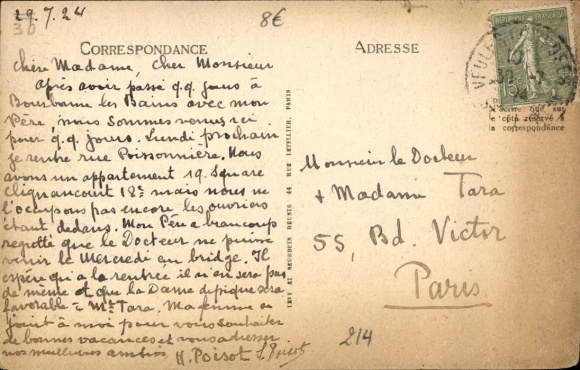 29.7.24
30
8€
CORRESPONDANCE
chère Madame, cher Monsieur
Après avoir passé q.q. jours à
Bourbonne les Bains avec mon
Père, nous sommes venus ici
pour q.q. jours. Lundi prochain
je rentre rue Poissonnière. Nous
avons un appartement 19. Square
Clignancourt 18e mais nous ne
l'occupons pas encore les ouvriers
étant dedans. Mon Père a beaucoup
regretté que le Docteur ne puisse
venir le Mercredi au bridge. Il
espère qu'à la rentrée il n'en sera pas
de même et que la Dame de pique sera
favorable à Me Tara. Ma femme se
joint à moi pour vous souhaiter
de bonnes vacances et vous adresser
nos meilleures amitiés H. Poisot
LEVY ET NEURDEIN REUNIS 44 RUE LETELLIER, PARIS
ADRESSE
REPUBLIQUE FRANÇAISE
15
VEULE
côté réservé à
la correspondance
Monsieur le Docteur
+ Madame Tara
55, Bd. Victor
Paris
214